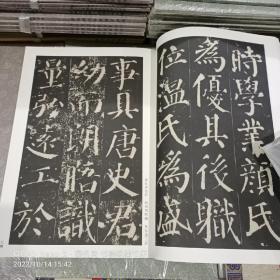 時學業顏氏
為優其後職
位温氏為盛
事具唐史君
幼而朗晤識
量弘遠工於
2022/10/14 15:42